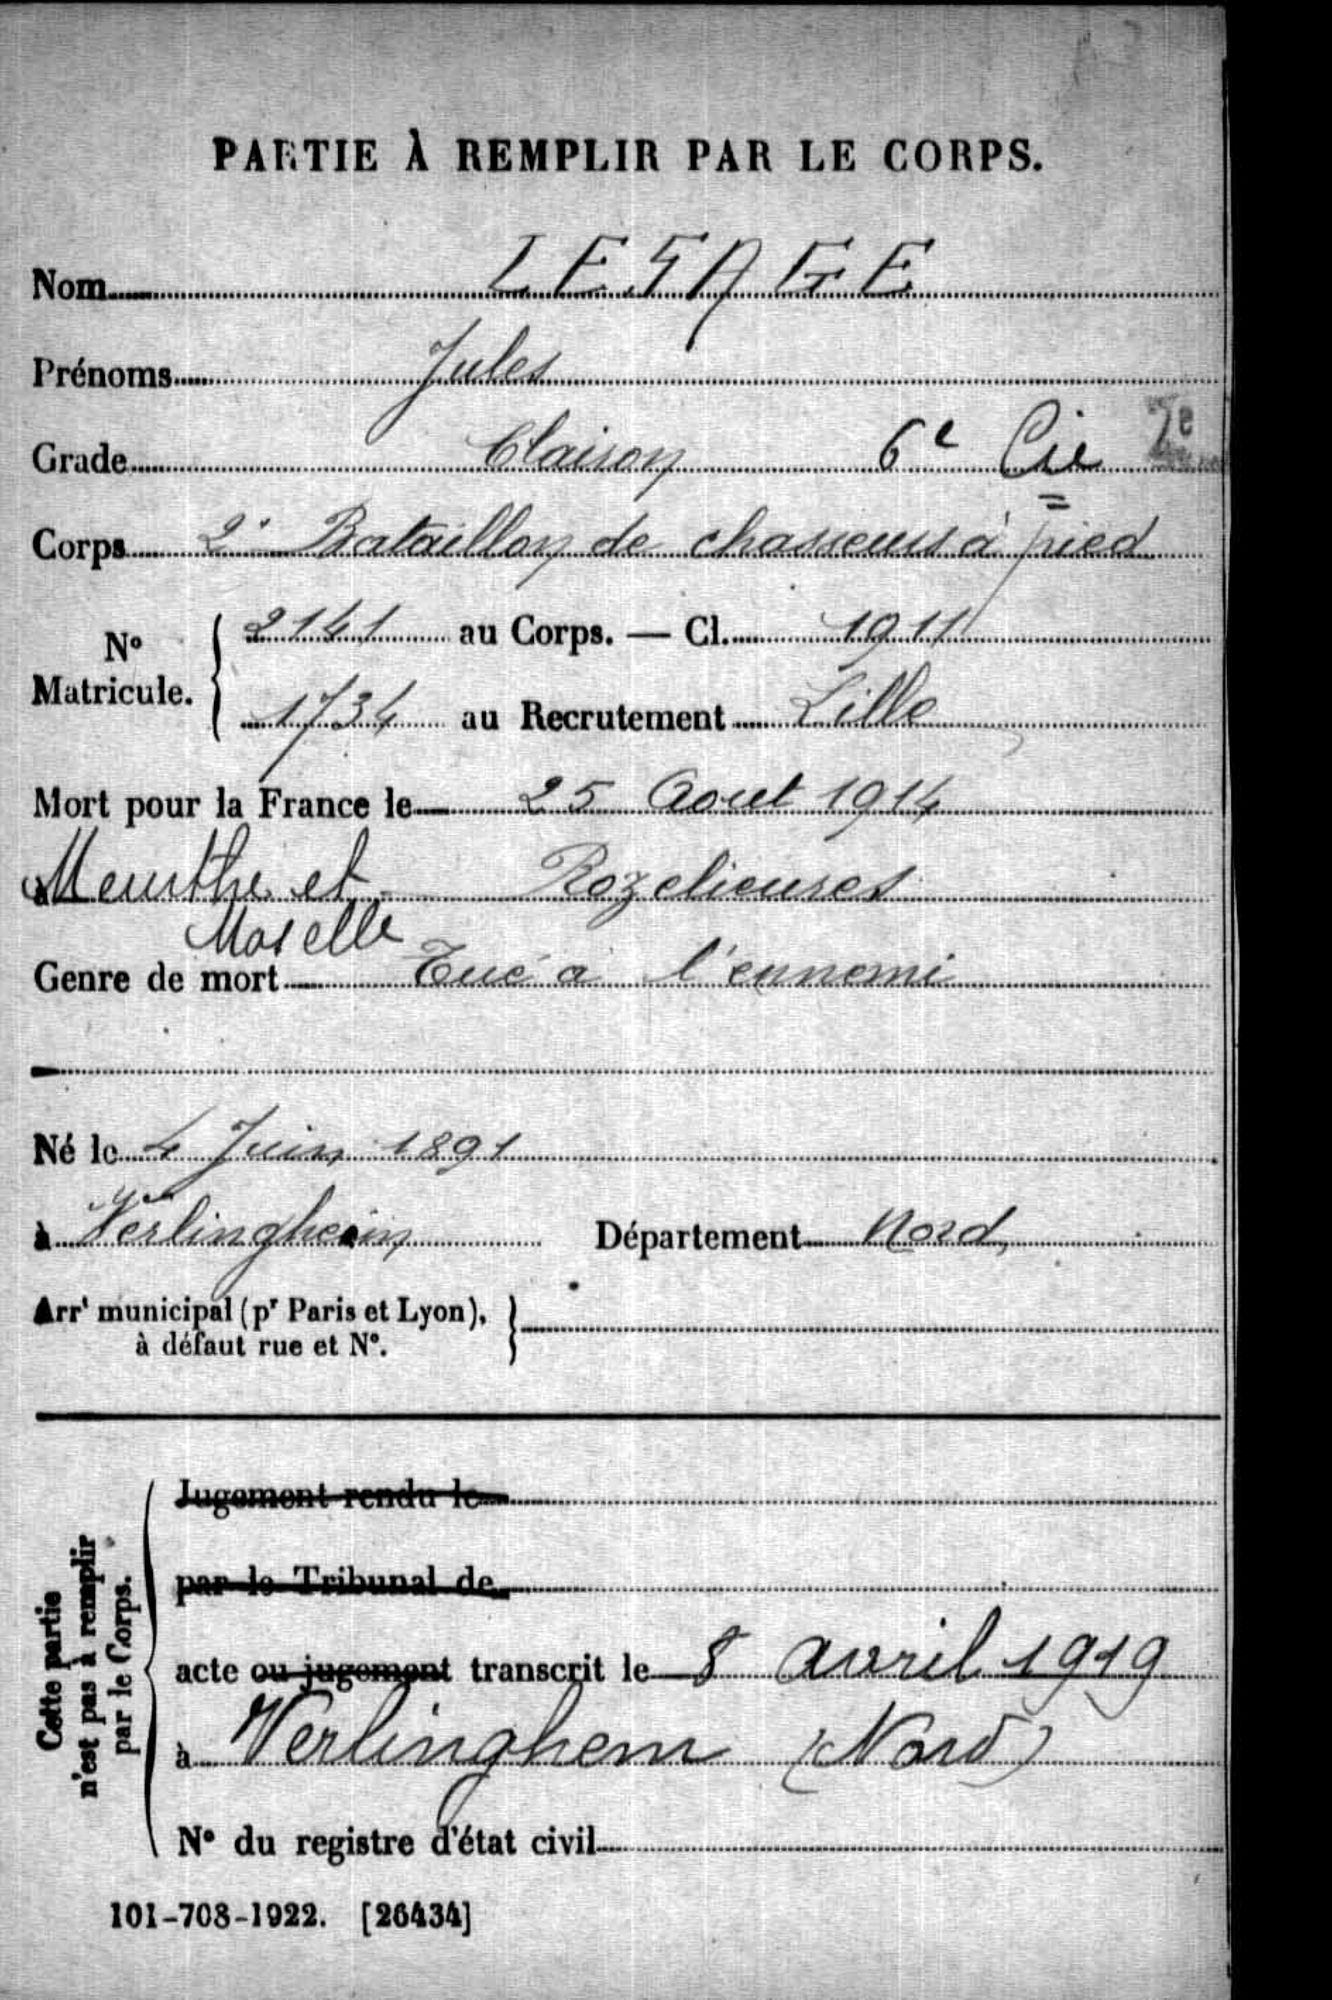 PARTIE À REMPLIR PAR LE CORPS.
Nom LESAGE
Prénoms Jules
Grade Clairon 6e Cie 2e
Corps 2e Bataillon de chasseurs à pied
No Matricule. { 2141 au Corps. — Cl. 1911
1734 au Recrutement Lille
Mort pour la France le 25 Aout 1914
à Meurthe et Moselle Rozelieures
Genre de mort Tué à l'ennemi
Né le 4 Juin 1891
à Verlinghem Département Nord
Arrt municipal (pr Paris et Lyon), à défaut rue et No. }
Cette partie n'est pas à remplir par le Corps.
Jugement rendu le
par le Tribunal de
acte ou jugement transcrit le 8 avril 1919
à Verlinghem (Nord)
No du registre d'état civil
101-708-1922. [26434]